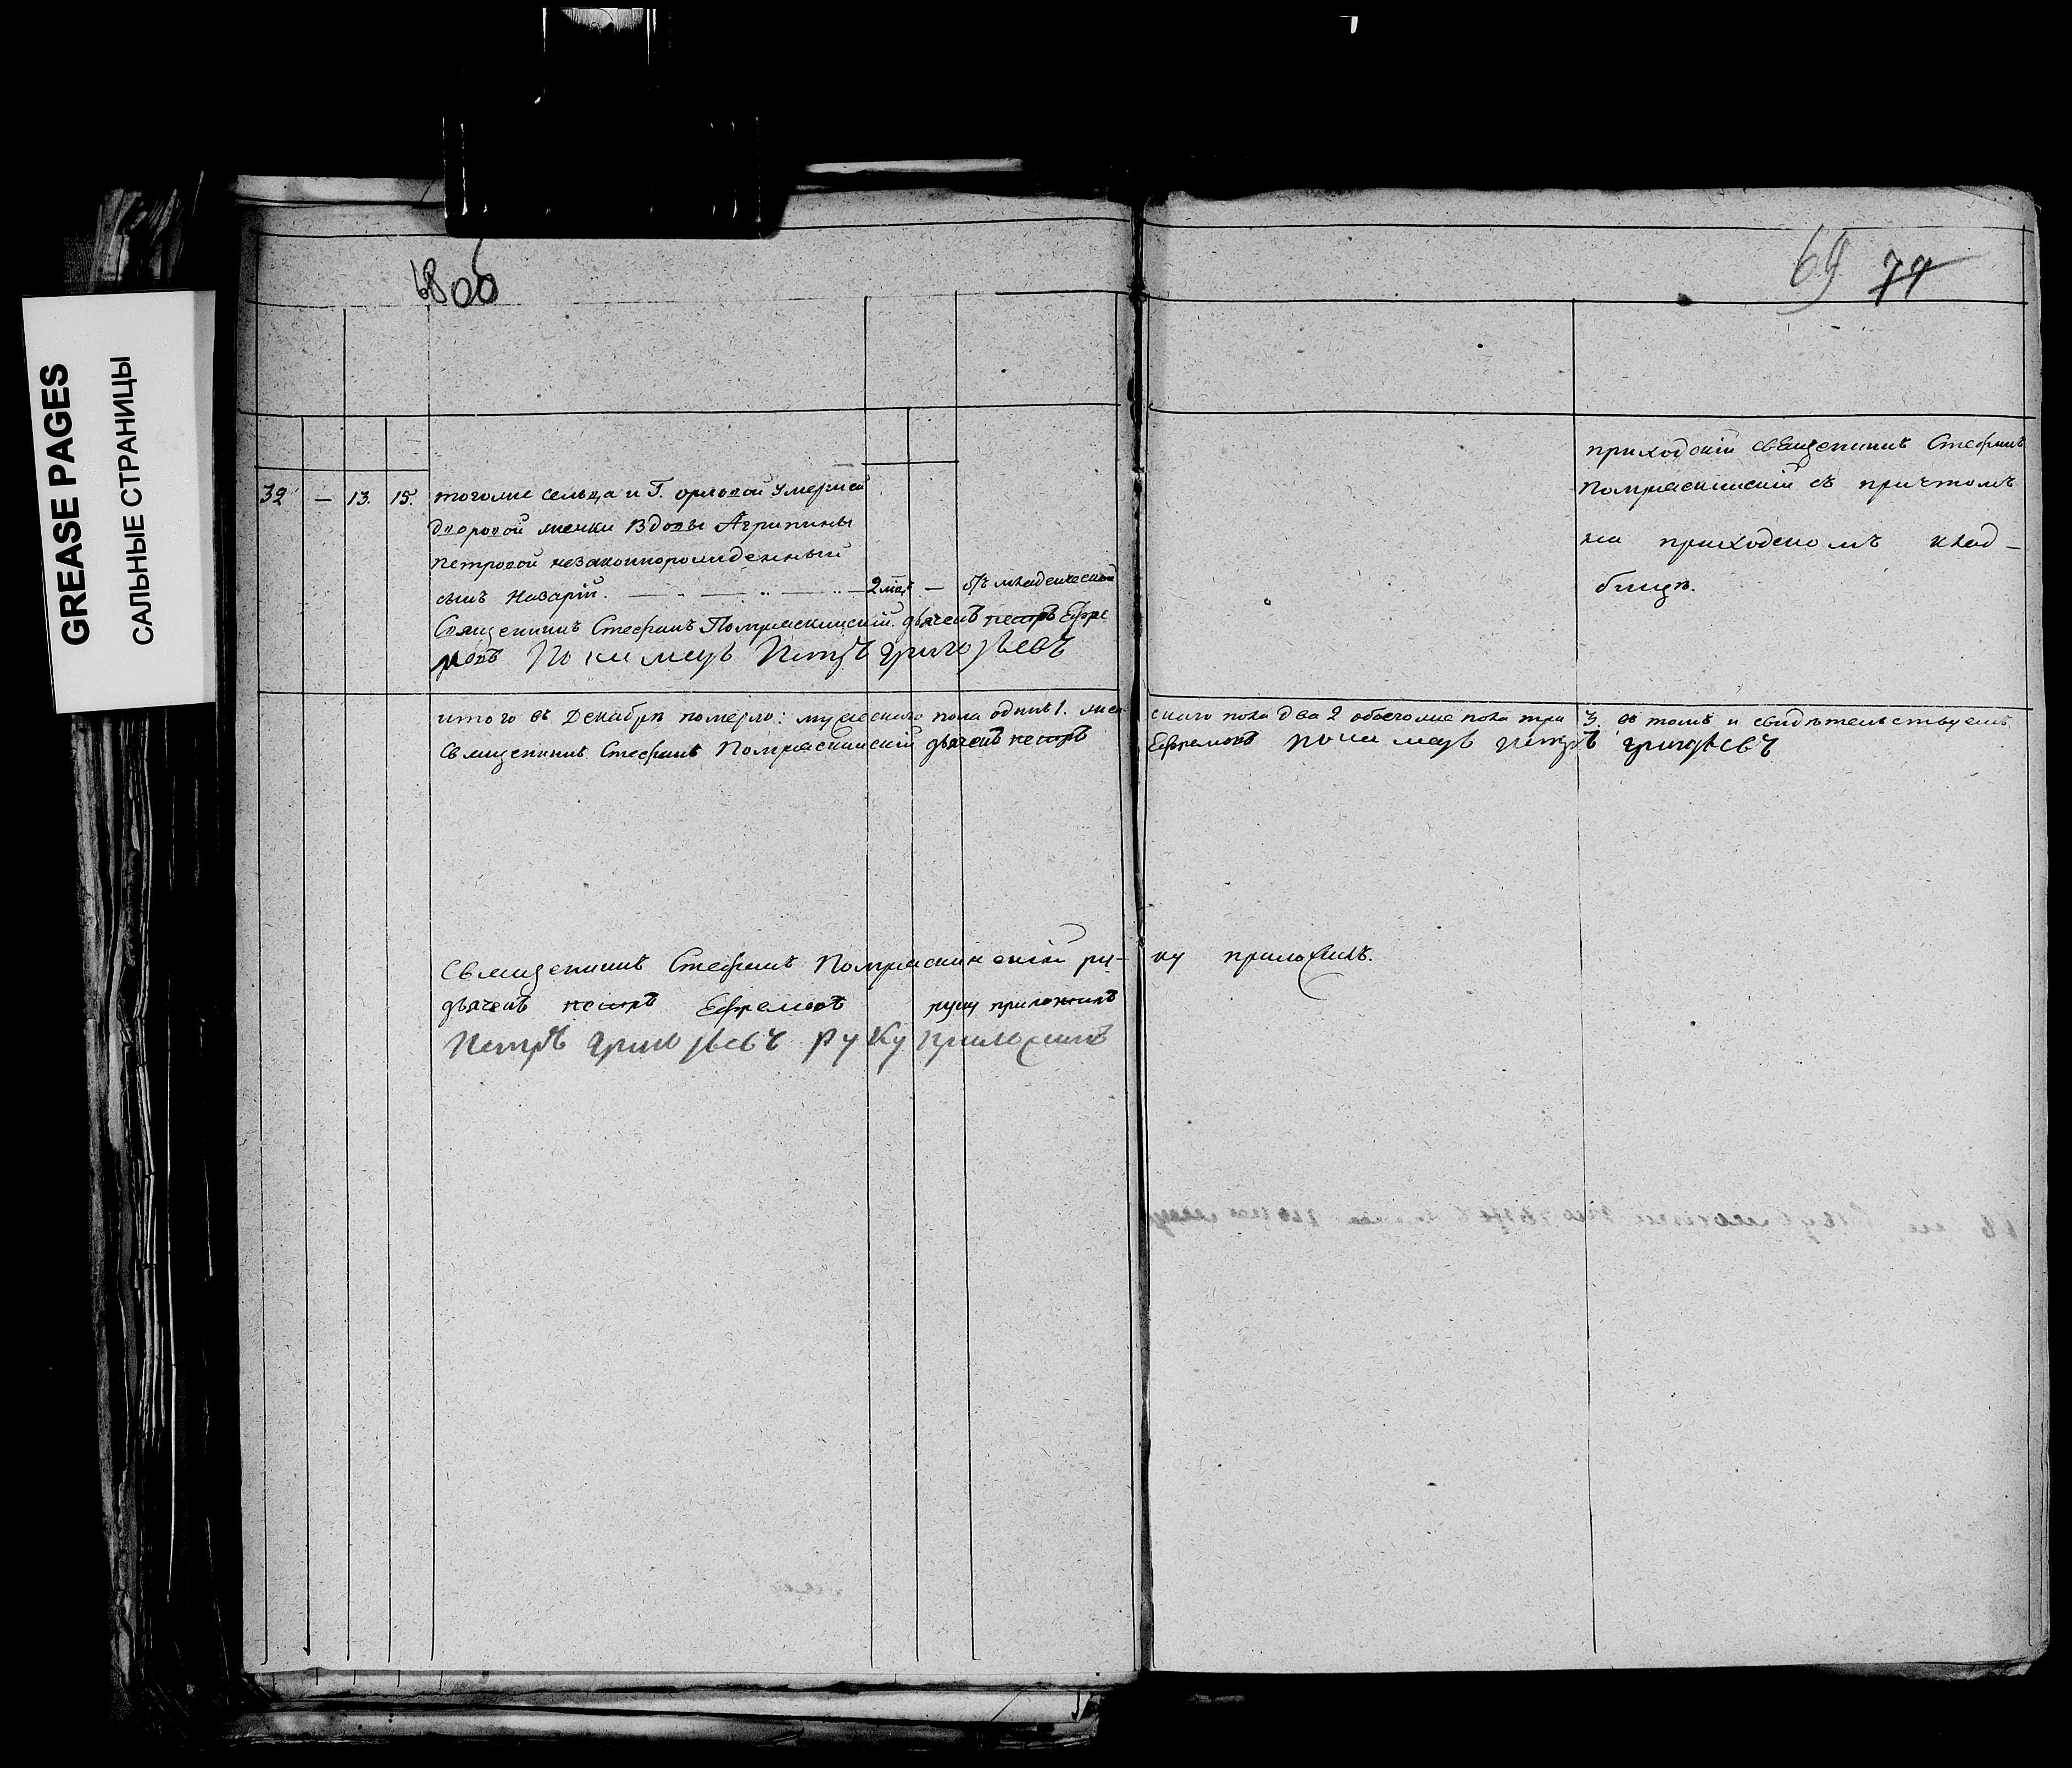 GREASE PAGES
САЛЬНЫЕ СТРАНИЦЫ
68об
69 71
32 — 13. 15. тогоже сельца и Г. орловой умершей
дворовой женки Вдовы Агрипины
петровой незаконнорожденный
сынъ Назарiй. 2 мѣс — отъ младенческой
приходскiй священникъ Стефанъ
съ причтомъ
на приходскомъ клад-
бищѣ.
Священникъ Стефанъ дьячекъ петръ Ефре
мовъ Пономарь Петръ григорьевъ
итого въ Декабрѣ померло: мужескаго пола одинъ 1. жен
скаго пола два 2 обоегоже пола три 3. въ томъ и свидѣтельствуемъ
Священникъ Стефанъ дьячекъ петръ
Ефремовъ пономарь петръ григорьевъ
Священникъ Стефанъ ру-
ку приложилъ.
дьячекъ петръ Ефремовъ руку приложилъ
Петръ григорьевъ руку приложилъ